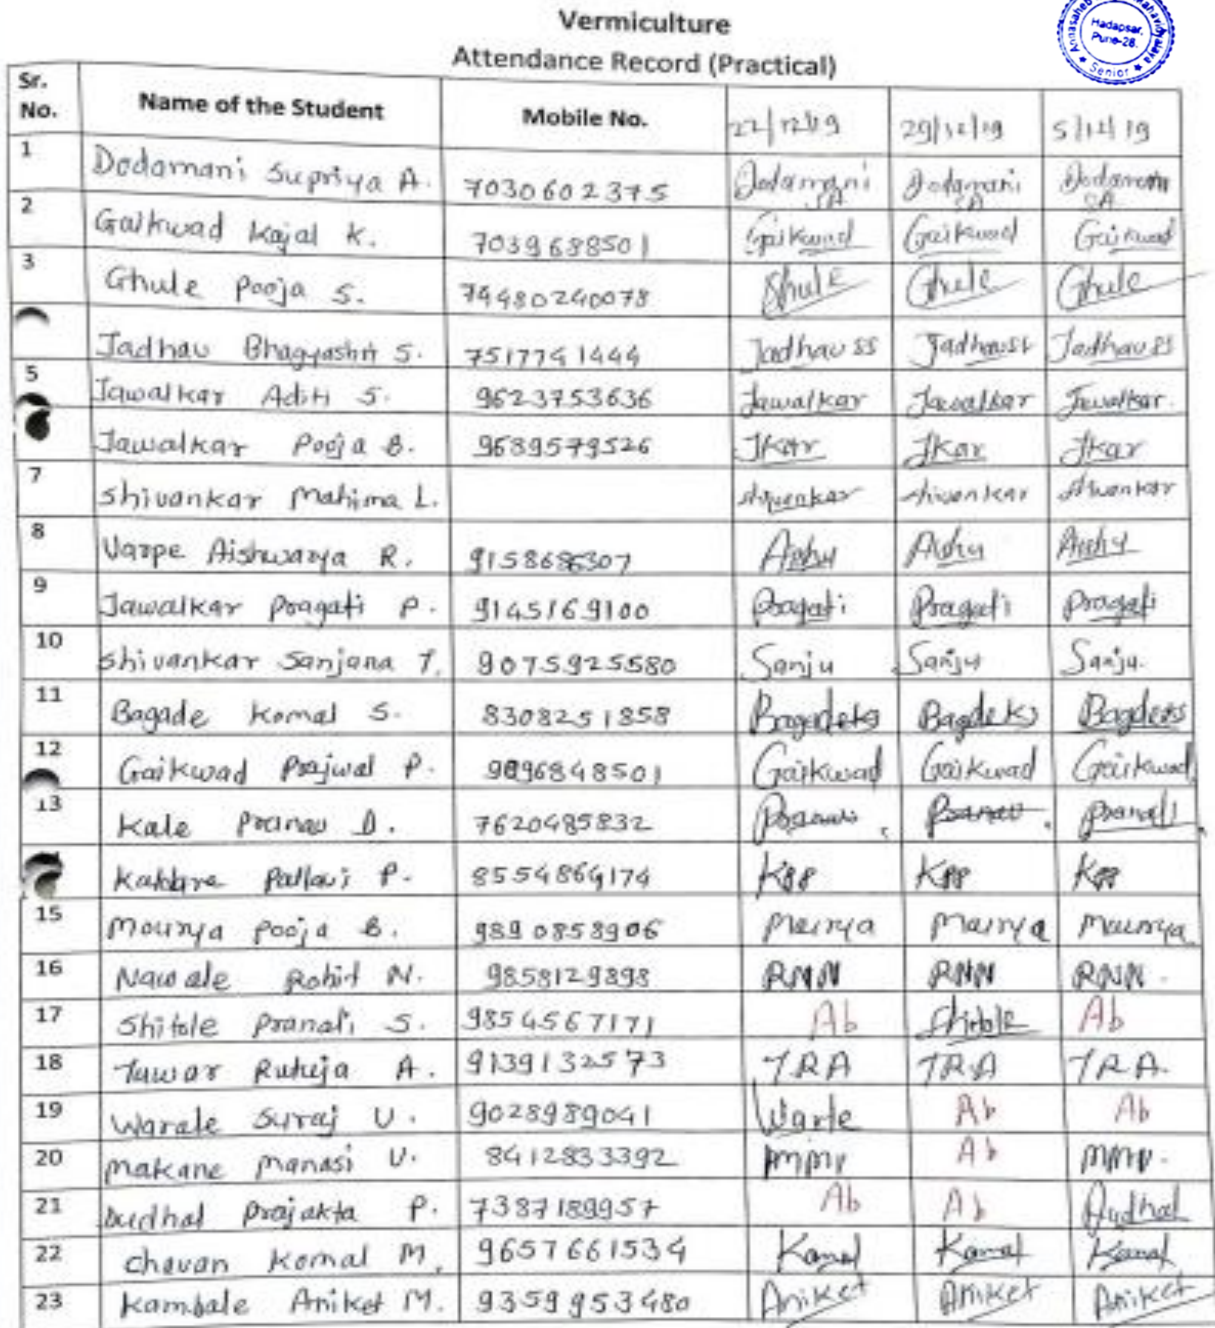 Vermiculture
Attendance Record (Practical)
Hadapsar,
Pune-28.
Senior
Sr. No. Name of the Student Mobile No. 22/12/19 29/12/19 5/12/19
1 Dodamani Supriya A. 7030602375 Dodamani SA Dodamani SA Dodamani SA
2 Gaikwad Kajal K. 7039688501 Gaikwad Gaikwad Gaikwad
3 Ghule Pooja S. 74480240078 Ghule Ghule Ghule
Jadhav Bhagyashri S. 7517741444 Jadhav SS Jadhav SS Jadhav SS
5 Jawalkar Aditi S. 9623753636 Jawalkar Jawalkar Jawalkar.
Jawalkar Pooja B. 9689579526 JKar JKar JKar
7 Shivankar Mahima L. Shivankar Shivankar Shivankar
8 Varpe Aishwarya R. 9158686307 Aishu Aishu Aishu
9 Jawalkar Pragati P. 9145169100 Pragati Pragati Pragati
10 Shivankar Sanjana T. 9075925580 Sanju Sanju Sanju.
11 Bagade Komal S. 8308251858 Bagadeks Bagdeks Bagdeks
12 Gaikwad Prajwal P. 9096848501 Gaikwad Gaikwad Gaikwad
13 Kale Pranav D. 7620485832 Pranav
Pallavi P. 8554864174 KPP KPP KPP
15 Mourya Pooja B. 9890858906 Mourya Mourya Mourya
16 Nawale Rohit N. 9858129898 RNN RNN RNN.
17 Shitole Pranali S. 9854567171 Ab Shitole Ab
18 Tawar Rutuja A. 9139132573 TRA TRA TRA.
19 Warale Suraj U. 9028989041 Warle Ab Ab
20 Makane Manasi V. 8412833392 MMV Ab MMV.
21 Dudhal Prajakta P. 7387189957 Ab Ab Dudhal
22 Chavan Komal M. 9657661534 Komal Komal Komal
23 Kambale Aniket M. 9359953480 Aniket Aniket Aniket